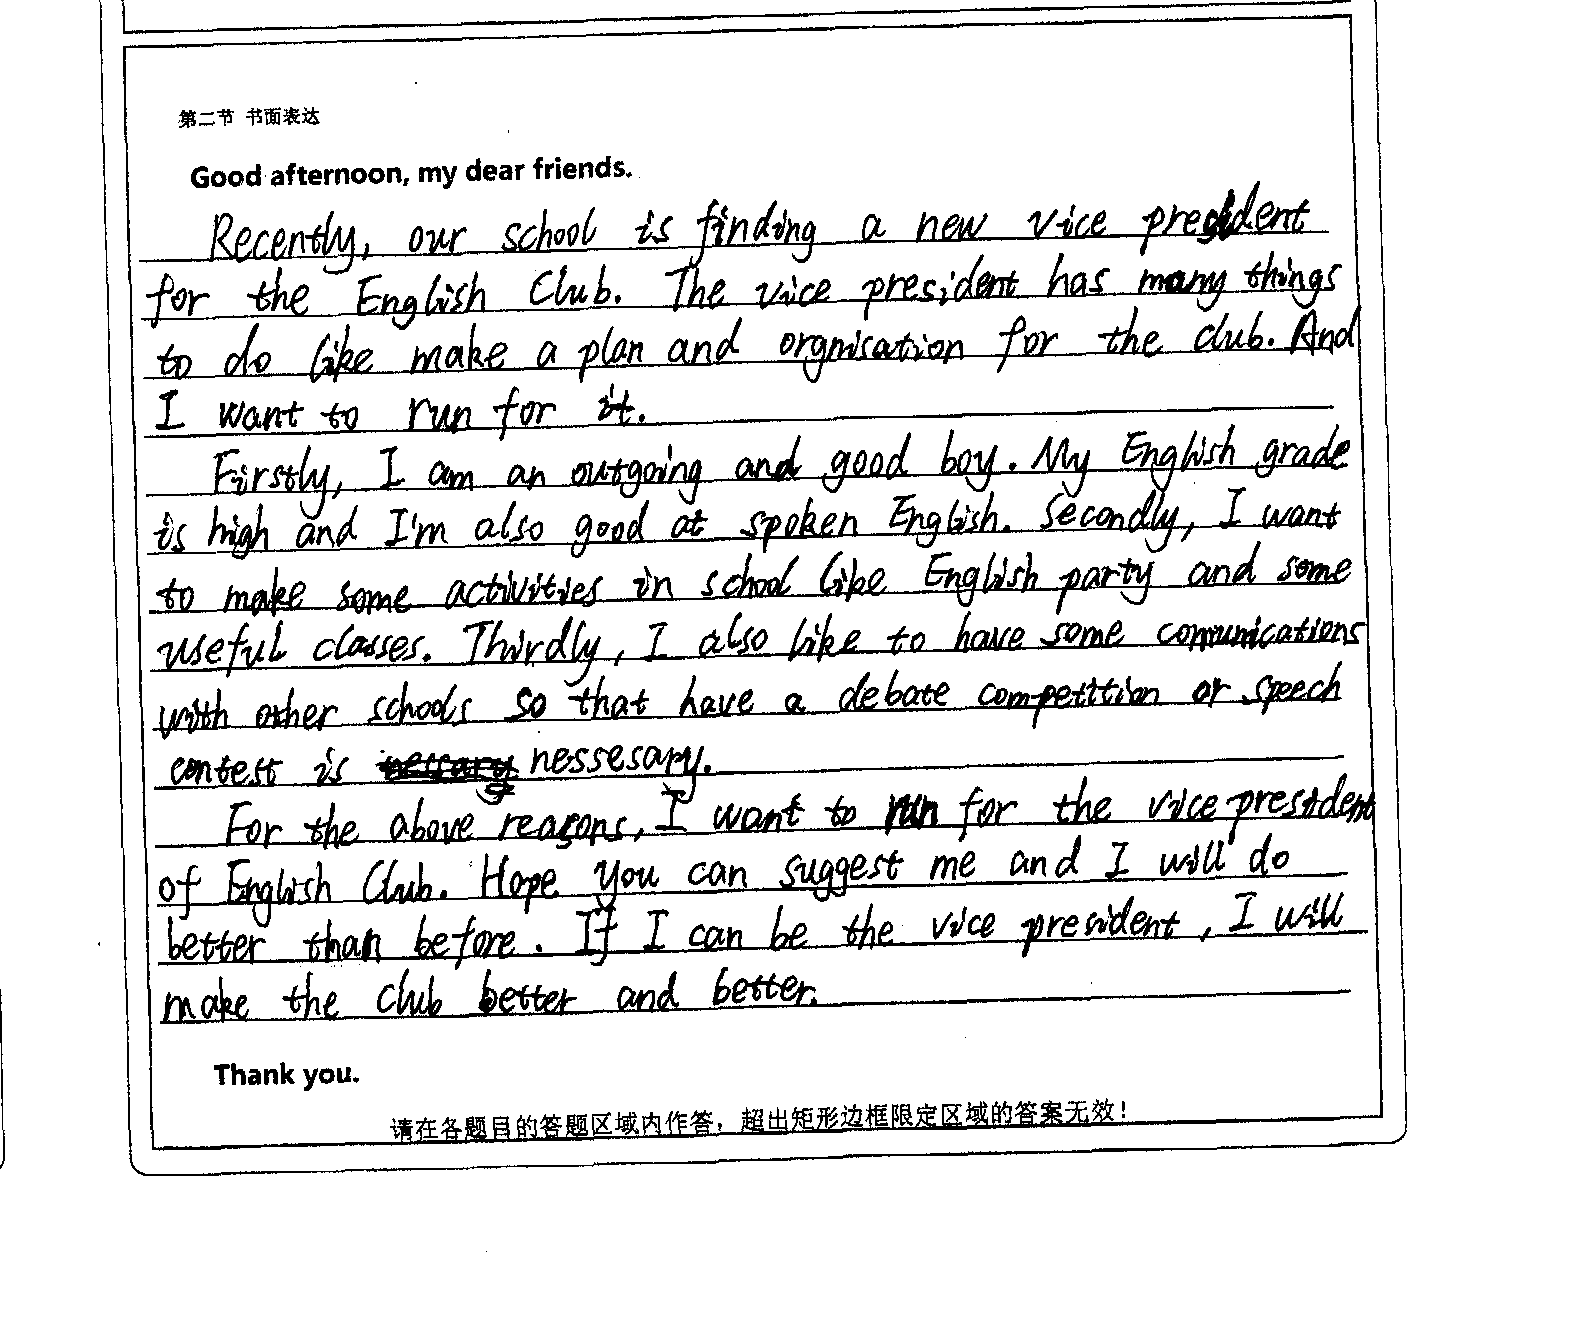 第二节 书面表达
Good afternoon, my dear friends.
Recently, our school is finding a new vice president
for the English Club. The vice president has many things
to do like make a plan and orgnisation for the club. And
I want to run for it.
Firstly, I am an outgoing and good boy. My English grade
is high and I'm also good at spoken English. Secondly, I want
to make some activities in school like English party and some
useful classes. Thirdly, I also like to have some comunications
with other schools so that have a debate competition or speech
contest is nessesary.
For the above reasons, I want to run for the vice president
of English Club. Hope you can suggest me and I will do
better than before. If I can be the vice president, I will
make the club better and better.
Thank you.
请在各题目的答题区域内作答，超出矩形边框限定区域的答案无效！